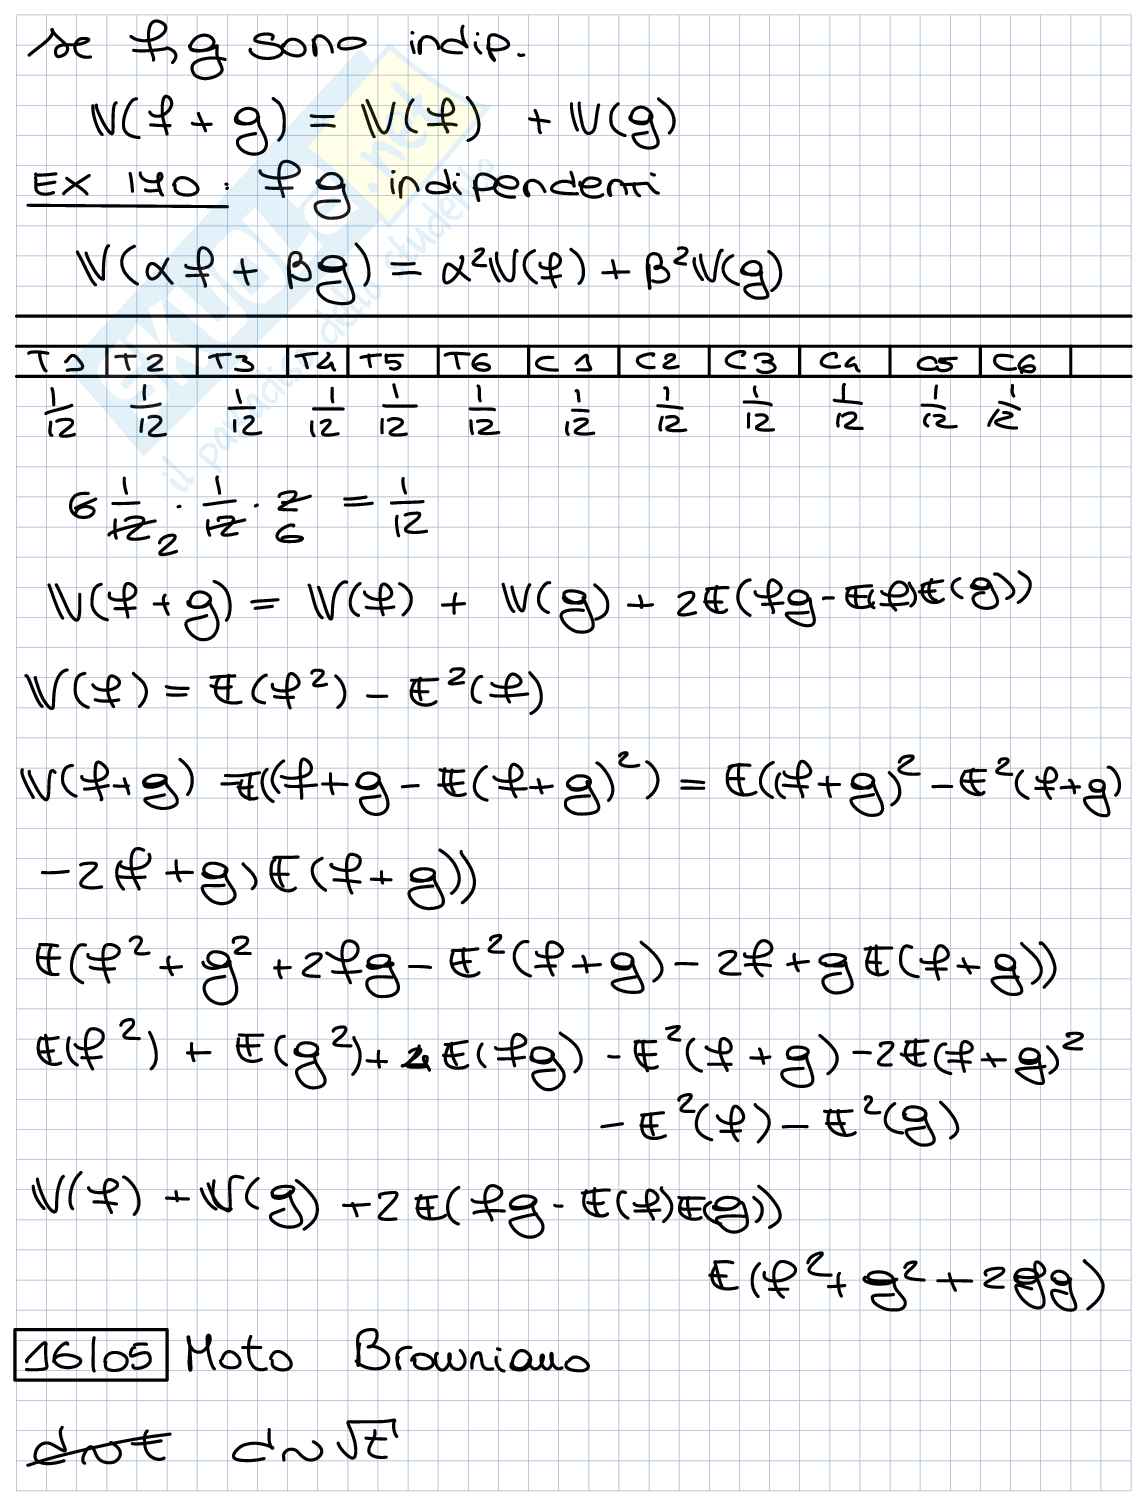 se f, g sono indip.
𝕍(f + g) = 𝕍(f) + 𝕍(g)
EX 170: f g indipendenti
𝕍(αf + βg) = α²𝕍(f) + β²𝕍(g)
T1 T2 T3 T4 T5 T6 C1 C2 C3 C4 C5 C6
1/12 1/12 1/12 1/12 1/12 1/12 1/12 1/12 1/12 1/12 1/12 1/12
6 1/12 2 · 1/12 · 2 6 = 1/12
𝕍(f + g) = 𝕍(f) + 𝕍(g) + 2𝔼(fg - 𝔼(f)𝔼(g))
𝕍(f) = 𝔼(f²) - 𝔼²(f)
𝕍(f+g) = 𝔼((f+g - 𝔼(f+g)²) = 𝔼((f+g)² - 𝔼²(f+g)
-2(f+g)𝔼(f+g))
𝔼(f² + g² + 2fg - 𝔼²(f+g) - 2f+g𝔼(f+g))
𝔼(f²) + 𝔼(g²) + 2𝔼(fg) - 𝔼²(f+g) - 2𝔼(f+g)²
- 𝔼²(f) - 𝔼²(g)
𝕍(f) + 𝕍(g) + 2𝔼(fg - 𝔼(f)𝔼(g))
𝔼(f² + g² + 2fg)
16/05 Moto Browniano
d~t d~√t
SKUOLA.net
il paradiso dello studente